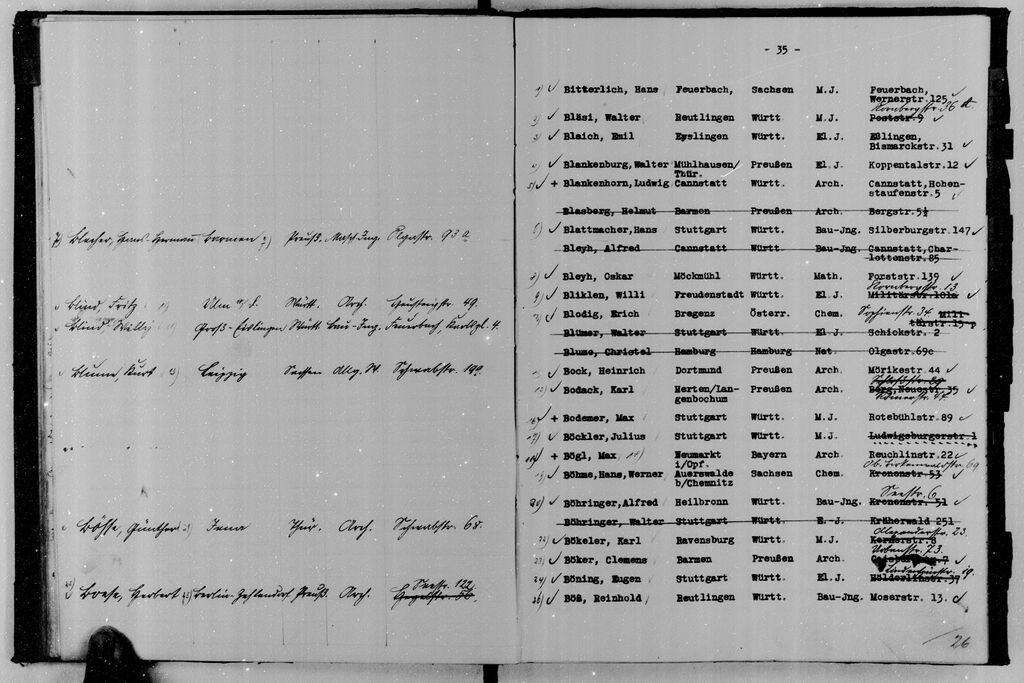 7) Blecher, Hans-Herman Barmen Preuß. Masch.Ing. Olgastr. 93 a
Blind, Fritz Ulm a/D. Württ. Arch. Hauffstr. 49.
Blind Willy Groß-Eislingen Württ. Bau-Ing. Feuerbach, Karlspl. 4.
Blum, Kurt 13) Leipzig Sachsen Allg. W. Schwabstr. 199.
Bösse, Günther Jena Thür. Arch. Schwabstr. 68.
Seestr. 122
Boese, Herbert Berlin-Zehlendorf Preuß. Arch. Hegelstr. 56.
- 35 -
1) Bitterlich, Hans Feuerbach, Sachsen M.J. Feuerbach,
Wernerstr.125
Kornbergstr. 36 A.
2) Bläsi, Walter Reutlingen Württ. M.J. Poststr.9
3) Blaich, Emil Esslingen Württ. El.J. Eßlingen,
Bismarckstr.31
4) Blankenburg,Walter Mühlhausen/ Preußen El.J. Koppentalstr.12
Thür.
5) + Blankenhorn,Ludwig Cannstatt Württ. Arch. Cannstatt,Hohen-
staufenstr.5
Blasberg, Helmut Barmen Preußen Arch. Bergstr.5½
6) Blattmacher,Hans Stuttgart Württ. Bau-Jng. Silberburgstr.147
Bleyh, Alfred Cannstatt Württ. Bau-Jng. Cannstatt,Char-
lottenstr.85
Bleyh, Oskar Möckmühl Württ. Math. Forststr.139
Kornbergstr. 13
9) Bliklen, Willi Freudenstadt Württ. El.J. Militärstr.101a
Blodig, Erich Bregenz Österr. Chem. Sophienstr. 34 Mili-
tärstr.15 p
Blümer, Walter Stuttgart Württ. El.J. Schickstr. 2
Blume, Christel Hamburg Hamburg Nat. Olgastr.69c
Bock, Heinrich Dortmund Preußen Arch. Mörikestr.44
Bodack, Karl Herten/Lan- Preußen Arch. Berg,Neuestr.35
genbochum Römerstr. 44.
16) + Bodemer, Max Stuttgart Württ. M.J. Rotebühlstr.89
17) Böckler,Julius Stuttgart Württ. M.J. Ludwigsburgerstr.1
18) + Bögl, Max Neumarkt Bayern Arch. Reuchlinstr.22
i/Opf. Ob. Birkenwaldstr. 69
19) Böhme,Hans,Werner Auerswalde Sachsen Chem. Kronenstr.53
b/Chemnitz
Seestr. 6
20) Böhringer,Alfred Heilbronn Württ. Bau-Jng. Kronenstr. 51
Böhringer, Walter Stuttgart Württ. E.-J. Kräherwald 251
Alexanderstr. 23.
22) Bökeler, Karl Ravensburg Württ. M.J. Kernerstr.8
Urbanstr. 73.
23) Böker, Clemens Barmen Preußen Arch.
Lindenspürstr. 19.
24) Böning, Eugen Stuttgart Württ. El.J. Hölderlinstr.37
25) Böß, Reinhold Reutlingen Württ. Bau-Jng. Moserstr. 13.
26